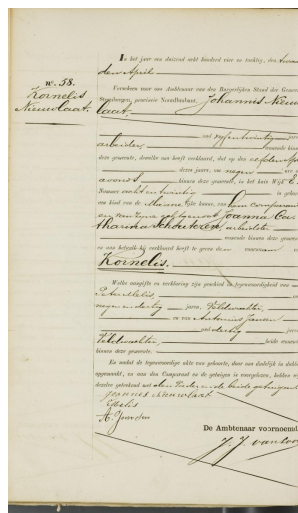 No. 58.
Kornelis
Nieuwlaat.
In het jaar een duizend acht honderd vier en tachtig, den
den April
Verscheen voor ons Ambtenaar van den Burgerlijken Stand der Gemeente
Steenbergen, provincie Noordbrabant, Johannis Nieuw
laat,
oud vijfentwintig jaren
arbeider, wonende binnen
deze gemeente, dewelke ons heeft verklaard, dat op den elfden April
dezer jaars, om negen ure des
avonds binnen deze gemeente, in het huis Wijk E
Nommer achtentwintig is geboren
een kind van de Mannelijke kunne, van hem comparant
en van zijne echtgenoot Joanna Ca
tharina Schoutezen, arbeidster
wonende binnen deze gemeente
en aan hetwelk hij verklaard heeft te geven de voornaam van
Kornelis.
Welke aangifte en verklaring zijn geschied in tegenwoordigheid van
Pieter Melis, oud
negenendertig jaren, Veldwachter,
en van Antonius Jansen
oud dertig jaren,
Veldwachter, beide wonende
binnen deze gemeente.
En nadat de tegenwoordige akte van geboorte, door ons dadelijk in dubbel
opgemaakt, en aan den Comparant en de getuigen is voorgelezen, hebben wij
dezelve geteekend met den Vader en de beide getuigen
Joannes Nieuwlaat
De Ambtenaar voornoemd